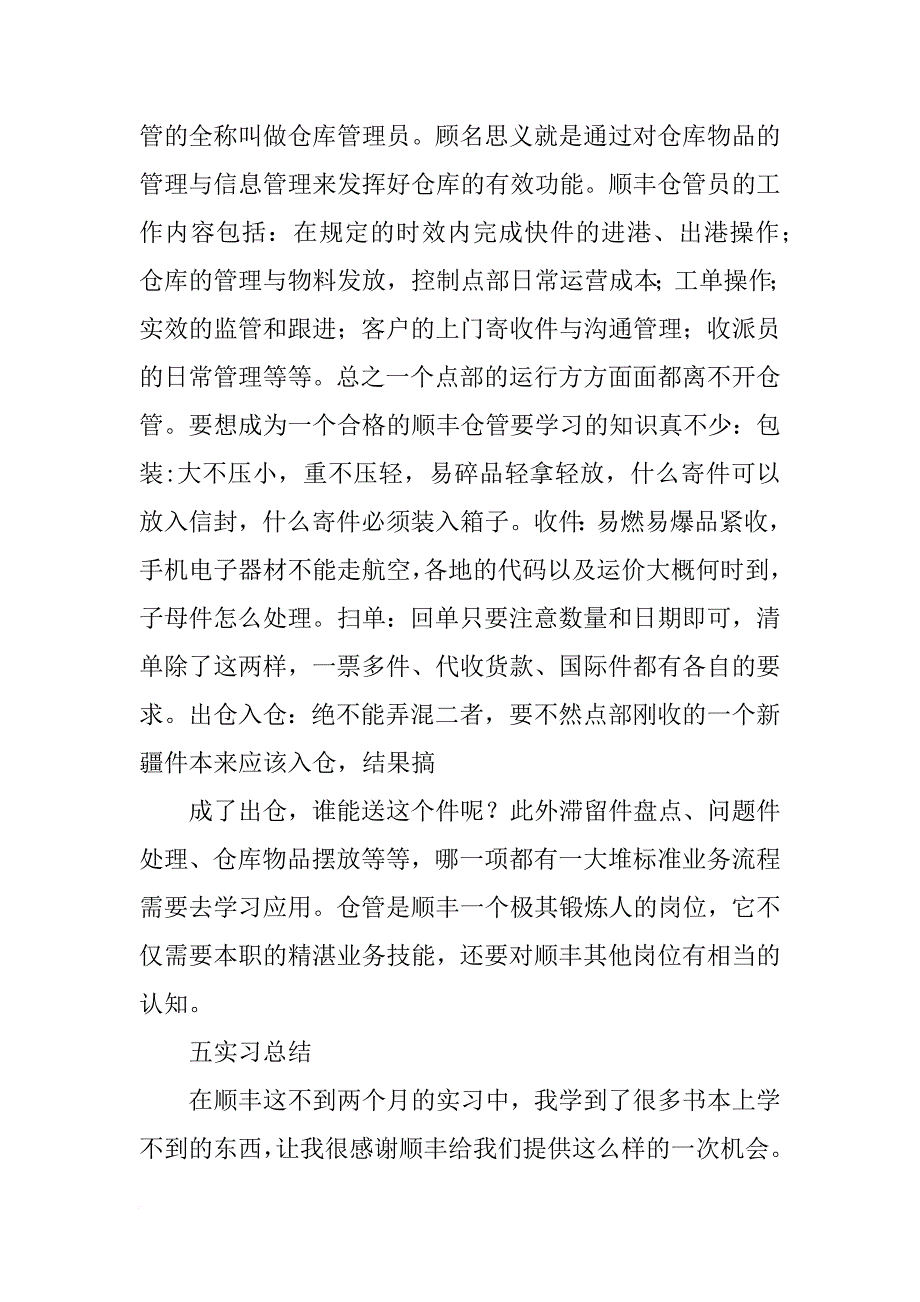 管的全称叫做仓库管理员。顾名思义就是通过对仓库物品的
管理与信息管理来发挥好仓库的有效功能。顺丰仓管员的工
作内容包括：在规定的时效内完成快件的进港、出港操作；
仓库的管理与物料发放，控制点部日常运营成本；工单操作；
实效的监管和跟进；客户的上门寄收件与沟通管理；收派员
的日常管理等等。总之一个点部的运行方方面面都离不开仓
管。要想成为一个合格的顺丰仓管要学习的知识真不少：包
装:大不压小，重不压轻，易碎品轻拿轻放，什么寄件可以
放入信封，什么寄件必须装入箱子。收件：易燃易爆品紧收，
手机电子器材不能走航空，各地的代码以及运价大概何时到，
子母件怎么处理。扫单：回单只要注意数量和日期即可，清
单除了这两样，一票多件、代收货款、国际件都有各自的要
求。出仓入仓：绝不能弄混二者，要不然点部刚收的一个新
疆件本来应该入仓，结果搞
成了出仓，谁能送这个件呢？此外滞留件盘点、问题件
处理、仓库物品摆放等等，哪一项都有一大堆标准业务流程
需要去学习应用。仓管是顺丰一个极其锻炼人的岗位，它不
仅需要本职的精湛业务技能，还要对顺丰其他岗位有相当的
认知。
五实习总结
在顺丰这不到两个月的实习中，我学到了很多书本上学
不到的东西，让我很感谢顺丰给我们提供这么样的一次机会。